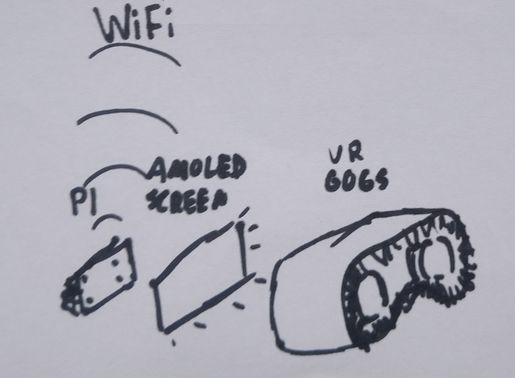 WiFi
AMOLED
SCREEN
PI
VR
GOGS